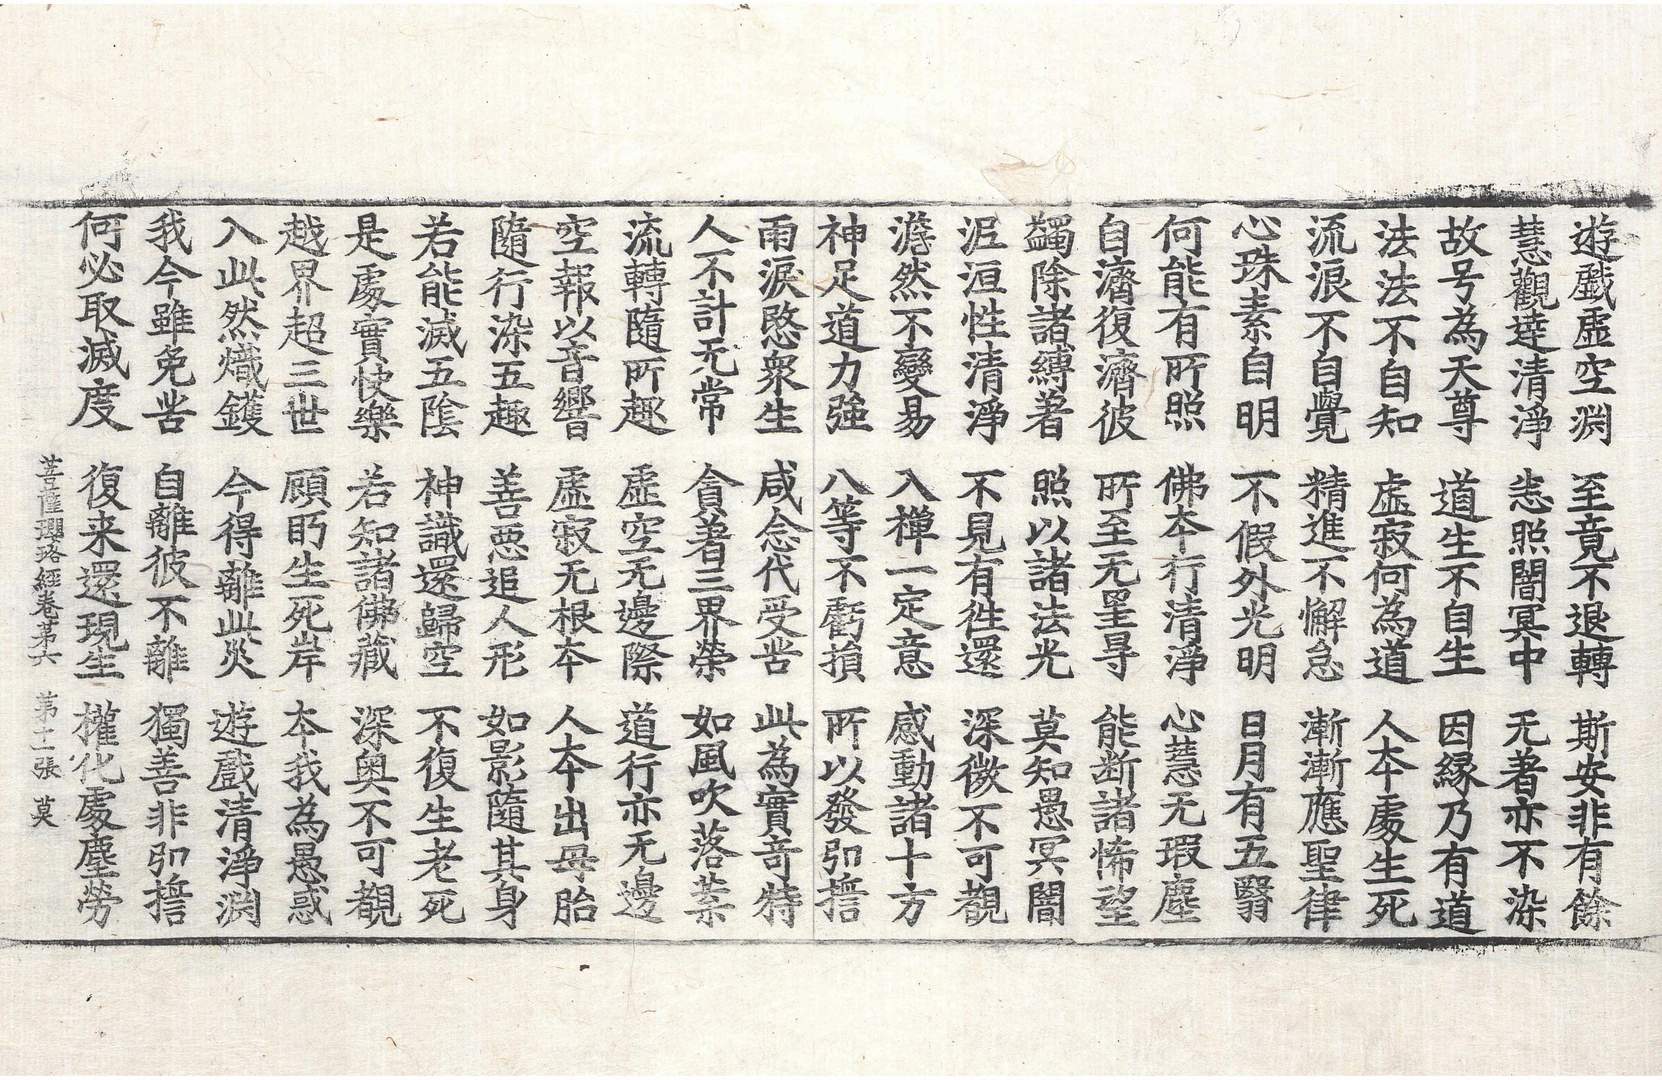 遊戲虛空淵　至竟不退轉　斯安非有餘
慧觀達清淨　悉照闇冥中　无著亦不染
故号為天尊　道生不自生　因縁乃有道
法法不自知　虛寂何為道　人本處生死
流浪不自覺　精進不懈怠　漸漸應聖律
心珠素自明　不假外光明　日月有五翳
何能有所照　佛本行清淨　心慧无瑕塵
自濟復濟彼　所至无罣㝵　能断諸悕望
蠲除諸縛著　照以諸法光　莫知愚冥闇
泥洹性清淨　不見有徃還　深微不可觀
湛然不變易　入禪一定意　感動諸十方
神足道力強　八等不虧損　所以發弘誓
雨淚愍衆生　咸念代受苦　此為實奇特
人不計无常　貪著三界榮　如風吹落葉
流轉隨所趣　虛空无邊際　道行亦无邊
空報以音響　虛寂无根本　人本出母胎
隨行染五趣　善惡追人形　如影隨其身
若能滅五陰　神識還歸空　不復生老死
是處實快樂　若知諸佛藏　深奥不可觀
越界超三世　顧眄生死岸　本我為愚惑
入此然熾鑊　今得離此災　遊戲清淨淵
我今雖免苦　自離彼不離　獨善非弘誓
何必取滅度　復来還現生　權化處塵勞
菩薩瓔珞經卷第六　第十二張　莫